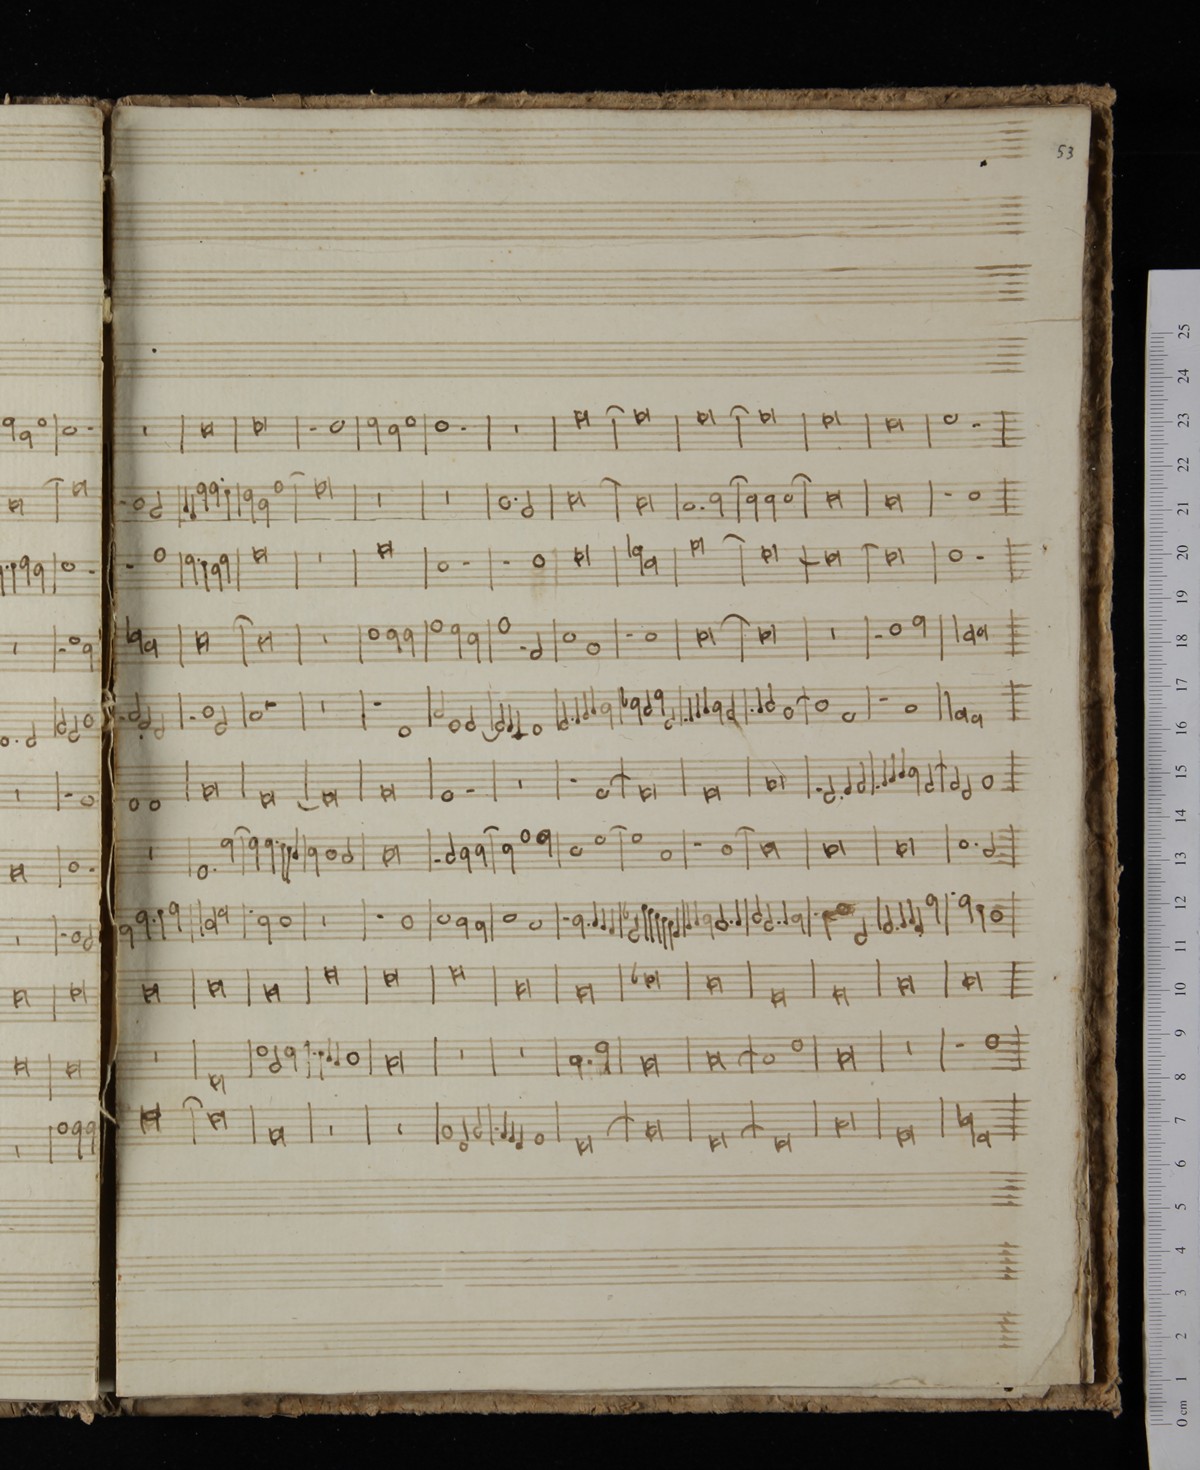 53
25
24
23
22
21
20
19
18
17
16
15
14
13
12
11
10
9
8
7
6
5
4
3
2
1
0 cm